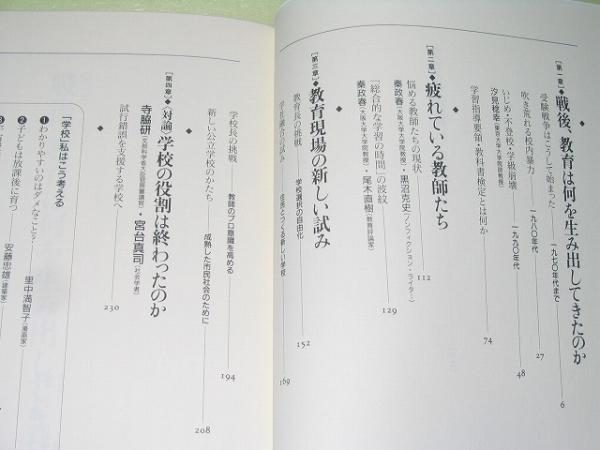 [第一章]◆戦後、教育は何を生み出してきたのか
受験戦争はこうして始まった 一九七〇年代まで 6
吹き荒れる校内暴力 一九八〇年代 27
いじめ・不登校・学級崩壊 一九九〇年代 48
汐見稔幸(東京大学大学院教授)
学習指導要領・教科書検定とは何か 74
[第二章]◆疲れている教師たち
悩める教師たちの現状 112
秦政春(大阪大学大学院教授)・黒沼克史(ノンフィクション・ライター)
「総合的な学習の時間」の波紋 129
秦政春(大阪大学大学院教授)・尾木直樹(教育評論家)
[第三章]◆教育現場の新しい試み
教育長の挑戦 学校選択の自由化 152
学校協議会の試み 住民とつくる新しい学校 169
学校長の挑戦 教師のプロ意識を高める 194
新しい公立学校のかたち 成熟した市民社会のために 208
[第四章]◆〈対論〉学校の役割は終わったのか
寺脇研(文部科学省大臣官房審議官)・宮台真司(社会学者)
試行錯誤を支援する学校へ 230
「学校」私はこう考える
❶わかりやすいのはダメなこと? 里中満智子(漫画家)
❷子どもは放課後に育つ 安藤忠雄(建築家)